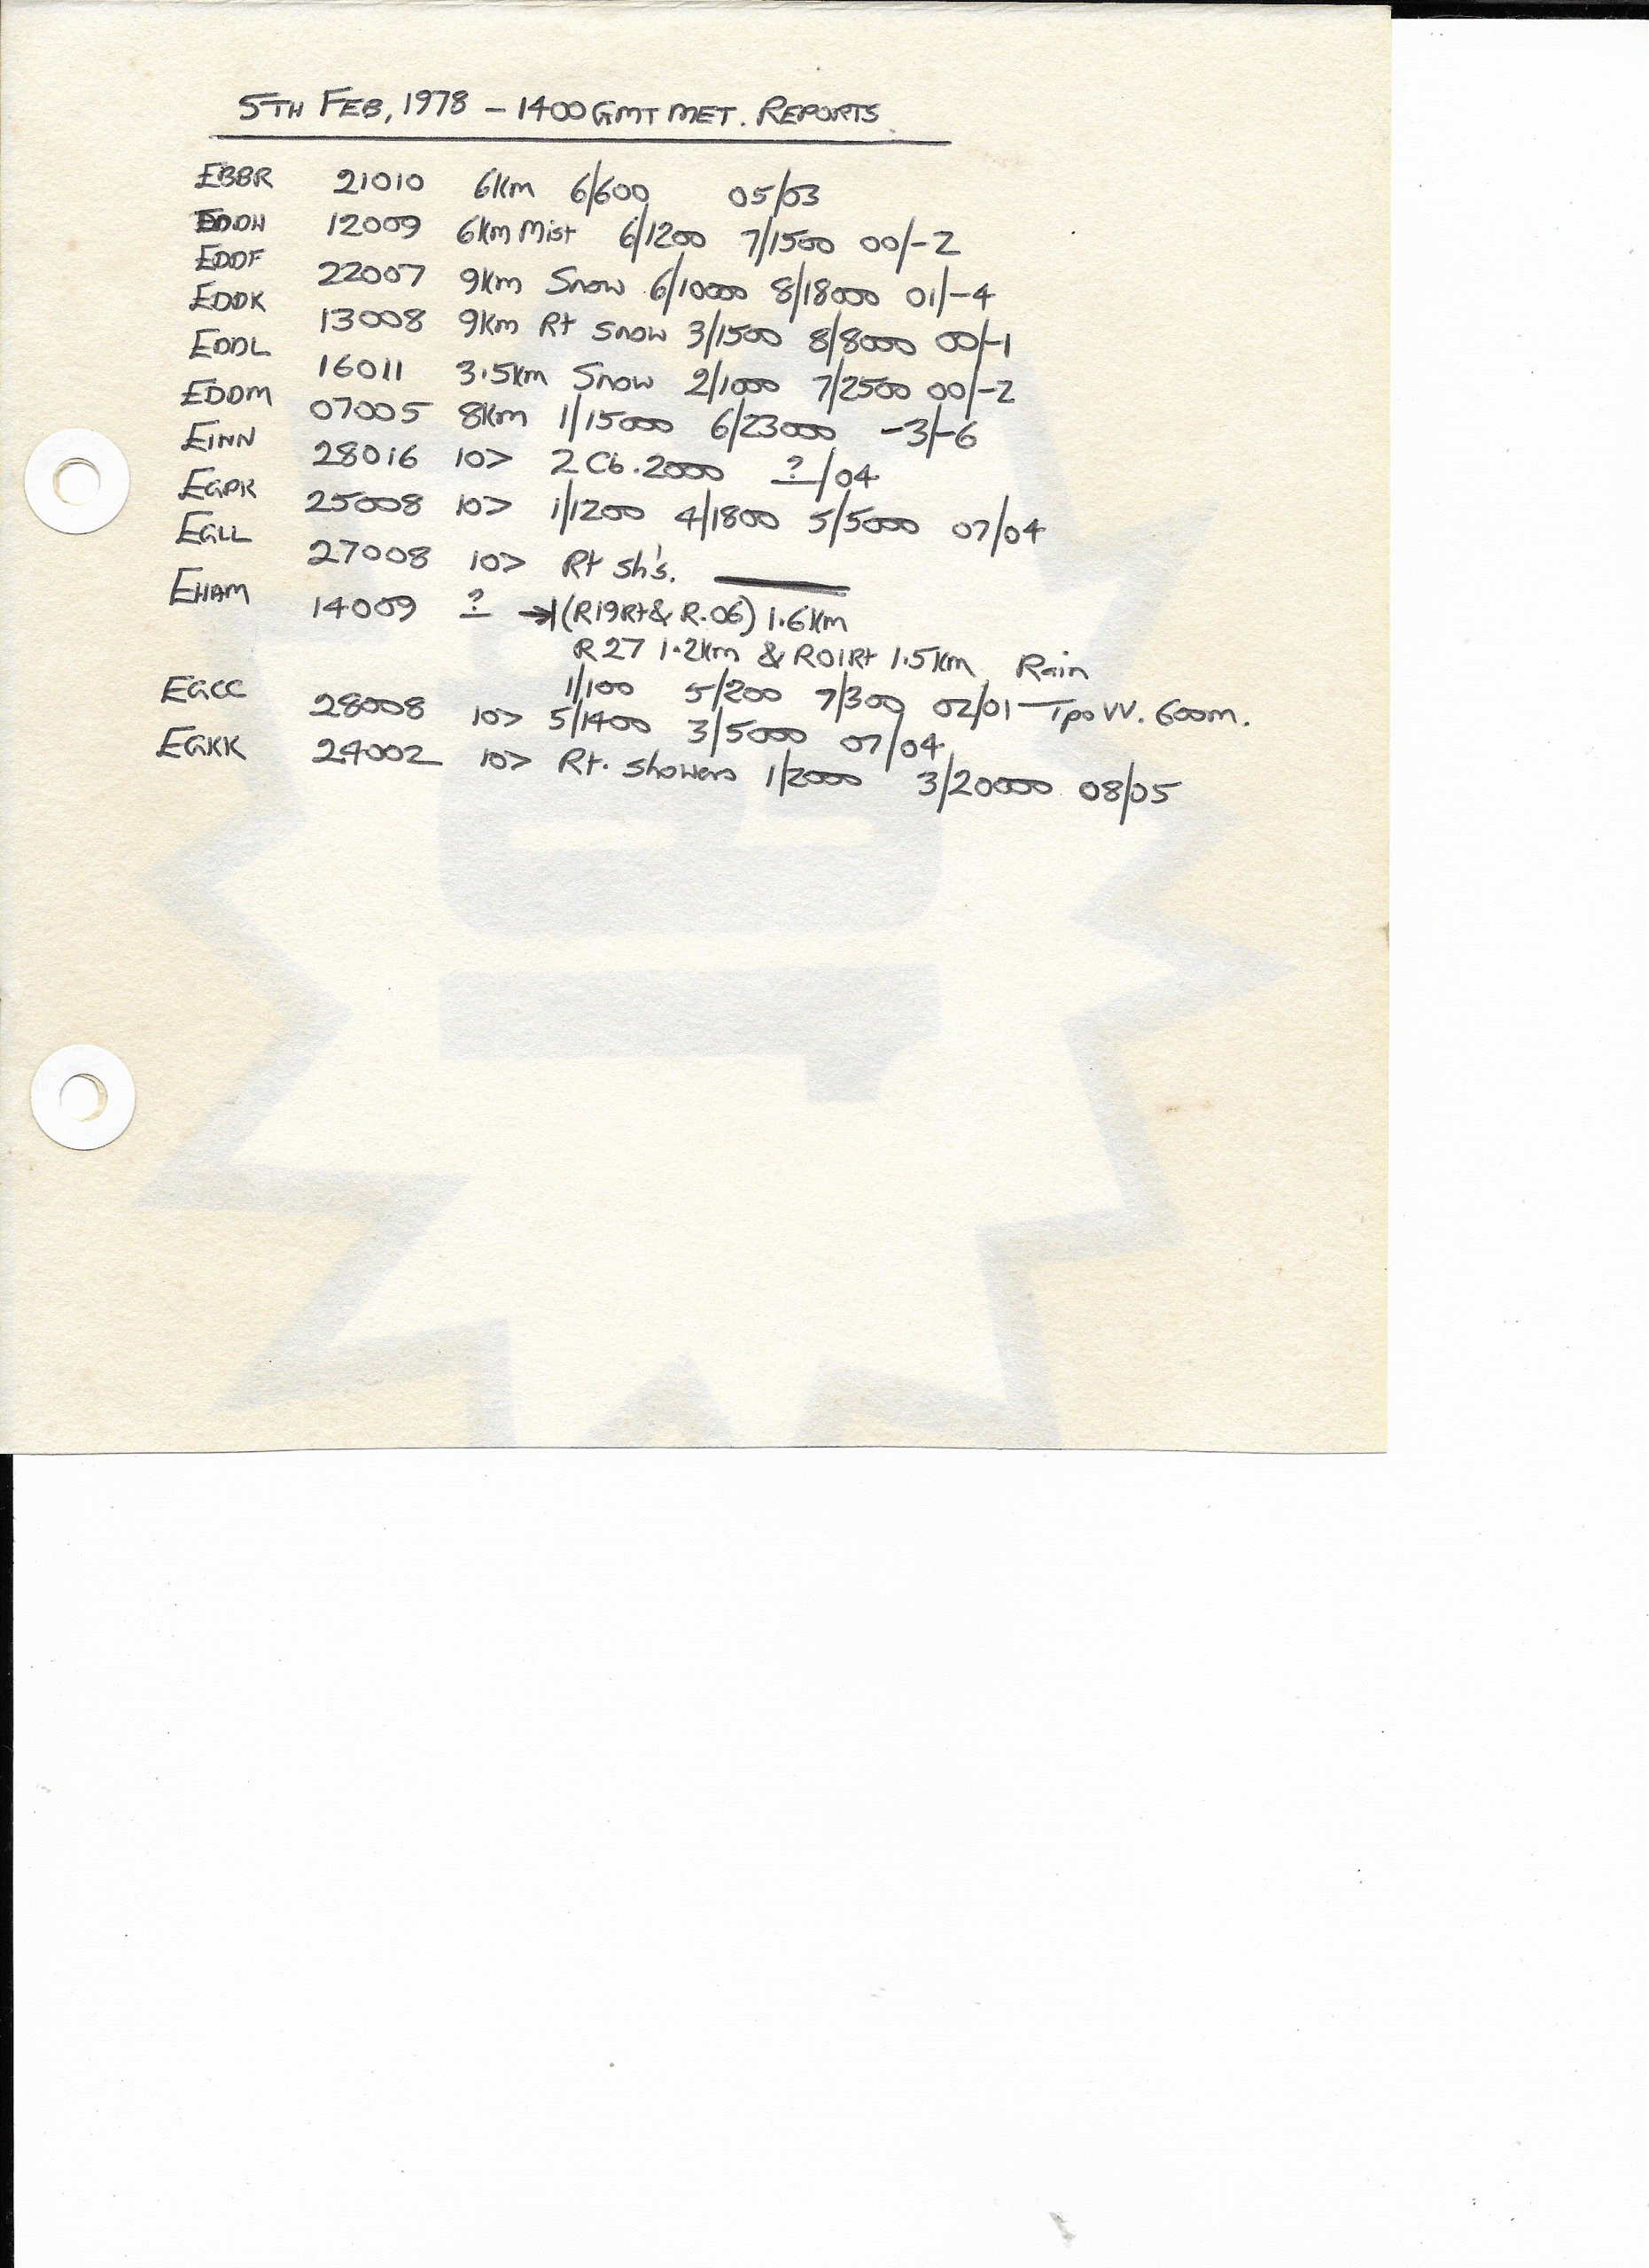 5TH FEB, 1978 – 1400 GMT MET. REPORTS.
EBBR 21010 6Km 6/600 05/03
EDDH 12009 6Km Mist 6/1200 7/1500 00/-2
EDDF 22007 9Km Snow 6/10000 8/18000 01/-4
EDDK 13008 9Km Rt Snow 3/1500 8/8000 00/-1
EDDL 16011 3.5Km Snow 2/1000 7/2500 00/-2
EDDM 07005 8Km 1/15000 6/23000 -3/-6
EINN 28016 10> 2 Cb.2000 ?/04
EGPK 25008 10> 1/1200 4/1800 5/5000 07/04
EGLL 27008 10> Rt sh's. ———
EHAM 14009 ? →(R19Rt & R.06) 1.6Km
R27 1.2Km & R01Rt 1.5Km Rain
1/100 5/200 7/300 02/01 – Tpo VV. 600m.
EGCC 28008 10> 5/1400 3/5000 07/04
EGKK 24002 10> Rt. showers 1/2000 3/20000 08/05